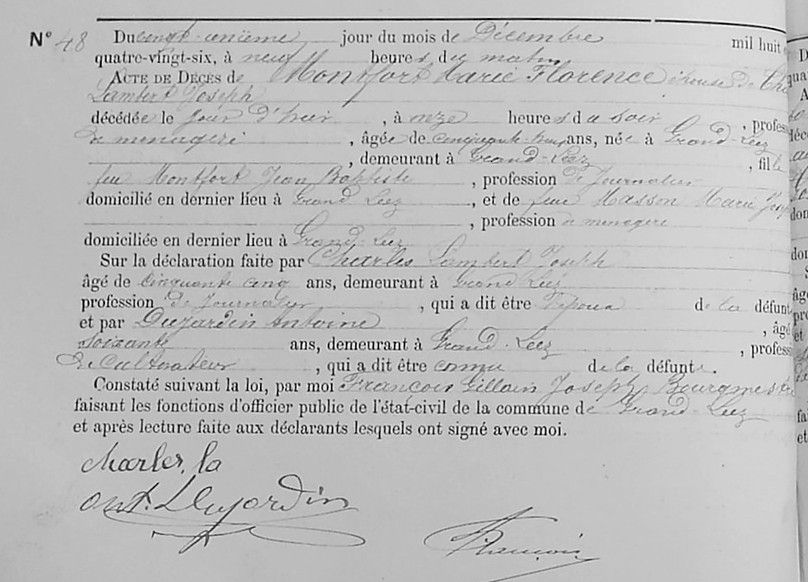 N° 48 Du vingt-unième jour du mois de Décembre mil huit
quatre-vingt-six, à neuf heures du matin
ACTE DE DÉCÈS de Montfort Marie Florence épouse de
Lambert Joseph
décédée le jour d'hier, à onze heures du soir, profes
de menagère, âgée de ans, née à Grand-Leez
, demeurant à Grand-Leez, fille
feu Montfort Jean Baptiste, profession de Journalier
domicilié en dernier lieu à Grand Leez, et de feue Masson Marie
, profession de menagere
domiciliée en dernier lieu à Grand-Leez
Sur la déclaration faite par Charles Lambert Joseph
âgé de Cinquante cinq ans, demeurant à Grand Leez
profession de Journalier, qui a dit être l'époux de la défunt
et par Dujardin Antoine, âgé
soixante ans, demeurant à Grand-Leez, profess
de Cultivateur, qui a dit être connu de la défunte.
Constaté suivant la loi, par moi François Gillain Joseph Bourgmestre
faisant les fonctions d'officier public de l'état-civil de la commune de Grand-Leez
et après lecture faite aux déclarants lesquels ont signé avec moi.
charles, la
ant. Dujardin